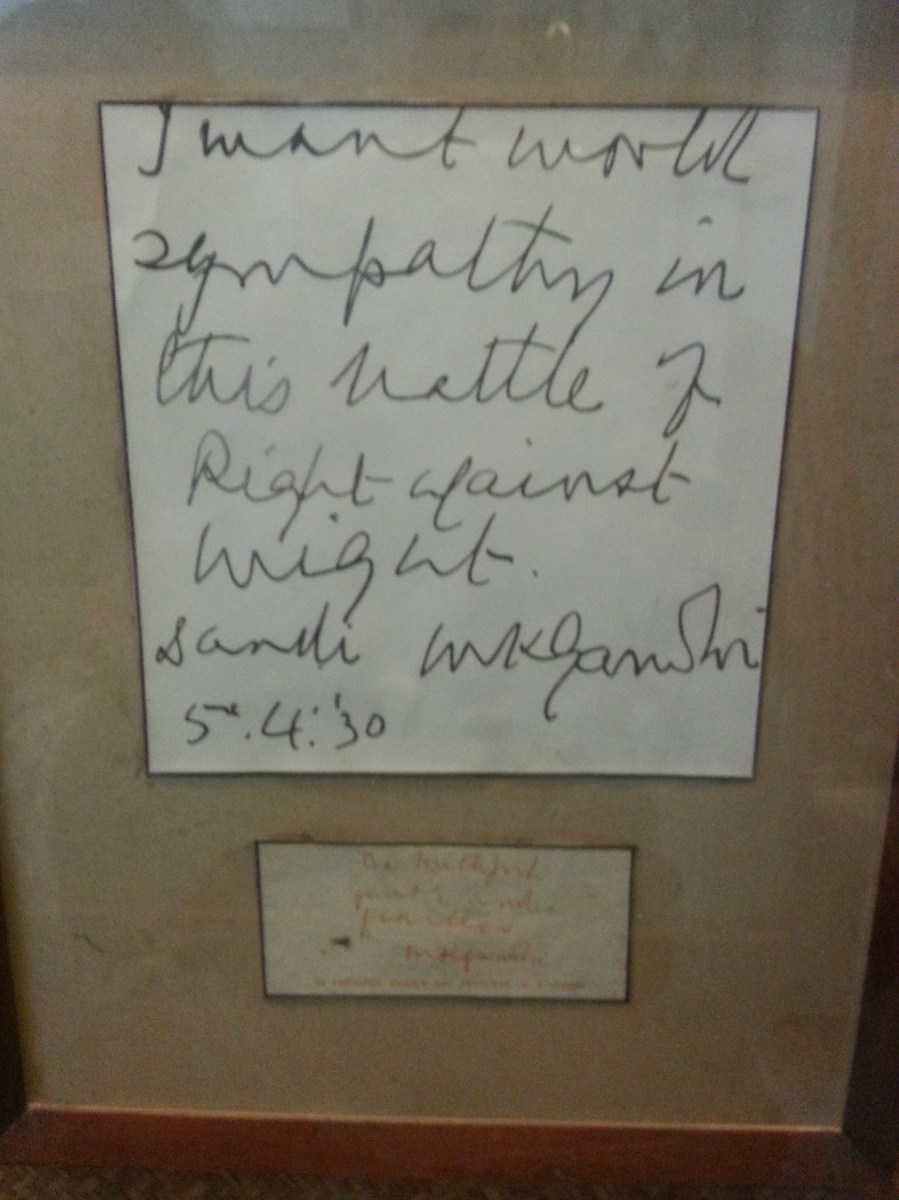 I want world
sympathy in
this battle of
Right against
might.
Dandi MKGandhi
5.4.'30
Be truthful
gentle and
fearless
MKGandhi